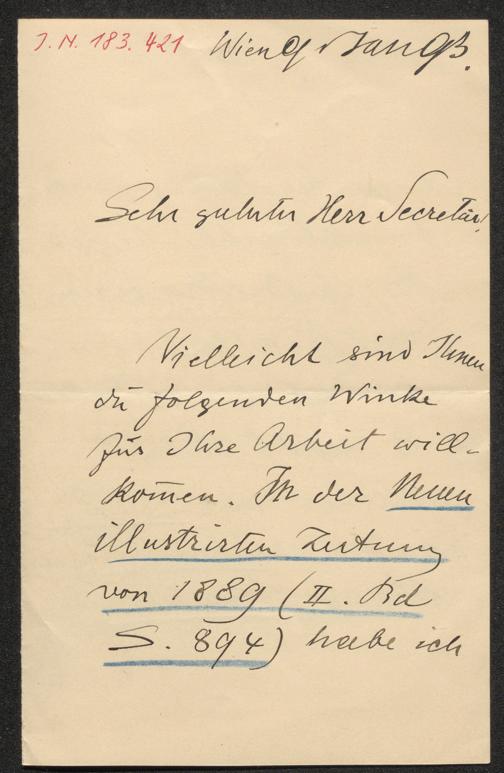 J. N. 183.421
Wien 9
Sehr geehrter Herr Secretär!
Vielleicht sind Ihnen
die folgenden Winke
für Ihre Arbeit will-
kom̄en. In der Neuen
illustrirten Zeitung
von 1889 (II. Bd
S. 894) habe ich